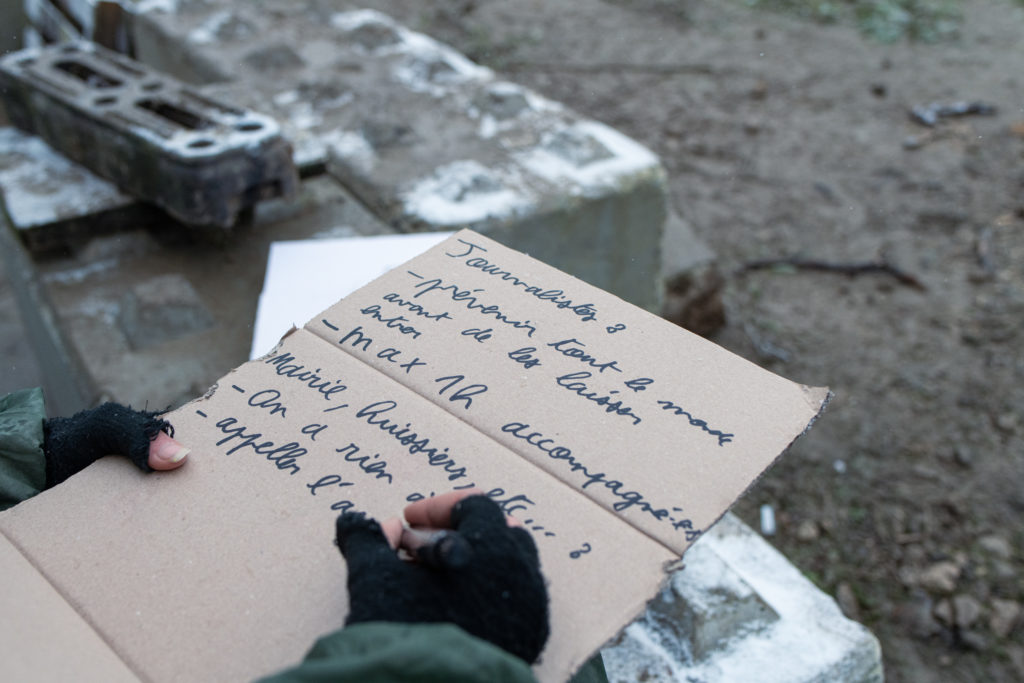 Journalistes ?
- prévenir tout le monde
avant de les laisser
entrer
- max 1h accompagné·es
Mairie, huissiers, etc... ?
- On a rien
- appeller l'a